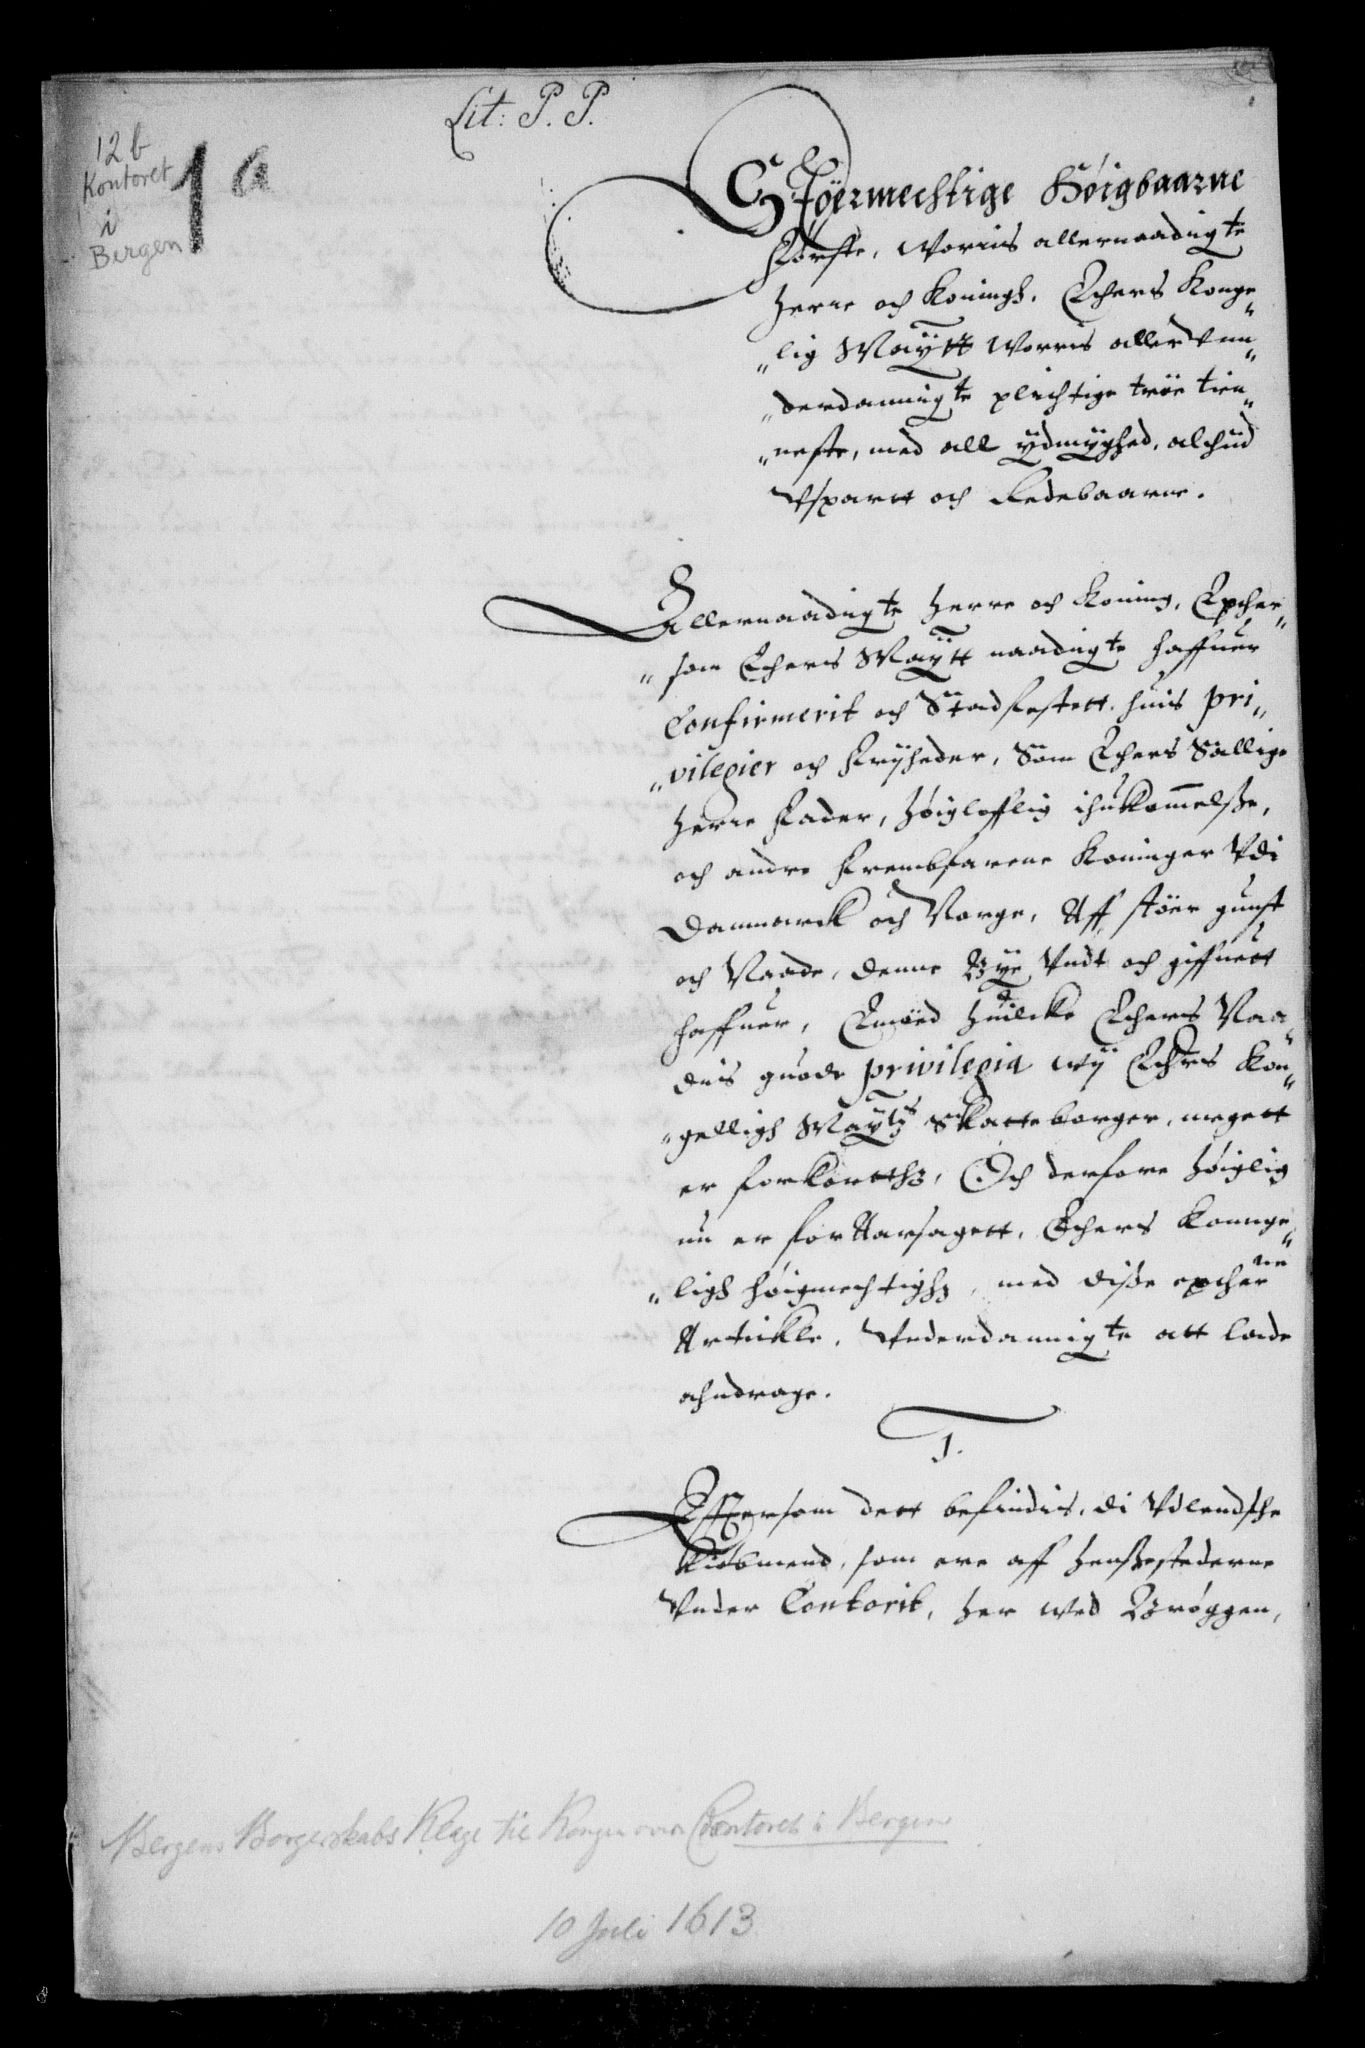 Lit: P. P.
12 b
Kontoret
i
Bergen
1 a
Støermechtige Høigbaarne
Førstte, Worris allernaadigte
Herre och Koningh, Echers Konge„
„lig Maÿtt Worris aller Vnn„
„derdannigte plichtige troe tien„
„neste, med all ÿdmÿghed, altiid
Vsparet och Redebaarne.
Allernaadigte Herre och Koning, Epther„
„som Echers Maÿtt naadigte haffuer
Confirmerit och Stadfestett. huis pri„
„vilegier och Frÿheder, Som Echers Sallige
Herre Fader, Høigloffllig ihukommelsse,
och andre Frembfarene Koninger Vdi
Danmarck och Norge, Aff støer gunst
och Naade, denne Bÿe Vndt och giffuett
haffuer, Emoed Huilcke Echers Naa„
dis guode privilegia wÿ Echers Kon„
„geligh Maÿtz Skatteborger, megett
er forkortths, Och derfore Høiglig
nu er forAarsagett, Echers Konnge„
„ligh høigmechtighz, med disse epther ne
Artickle. Vnderdannigte att lade
ahndrage.
1.
Efftersom dett befindis, di Vdlendsche
Kiøbmend, som ere aff Hensestederne
Vnder Contorit, her wed Brøggen,
Bergens Borgerskabs Klage til Kongen over Contoret i Bergen
10 Juli 1613